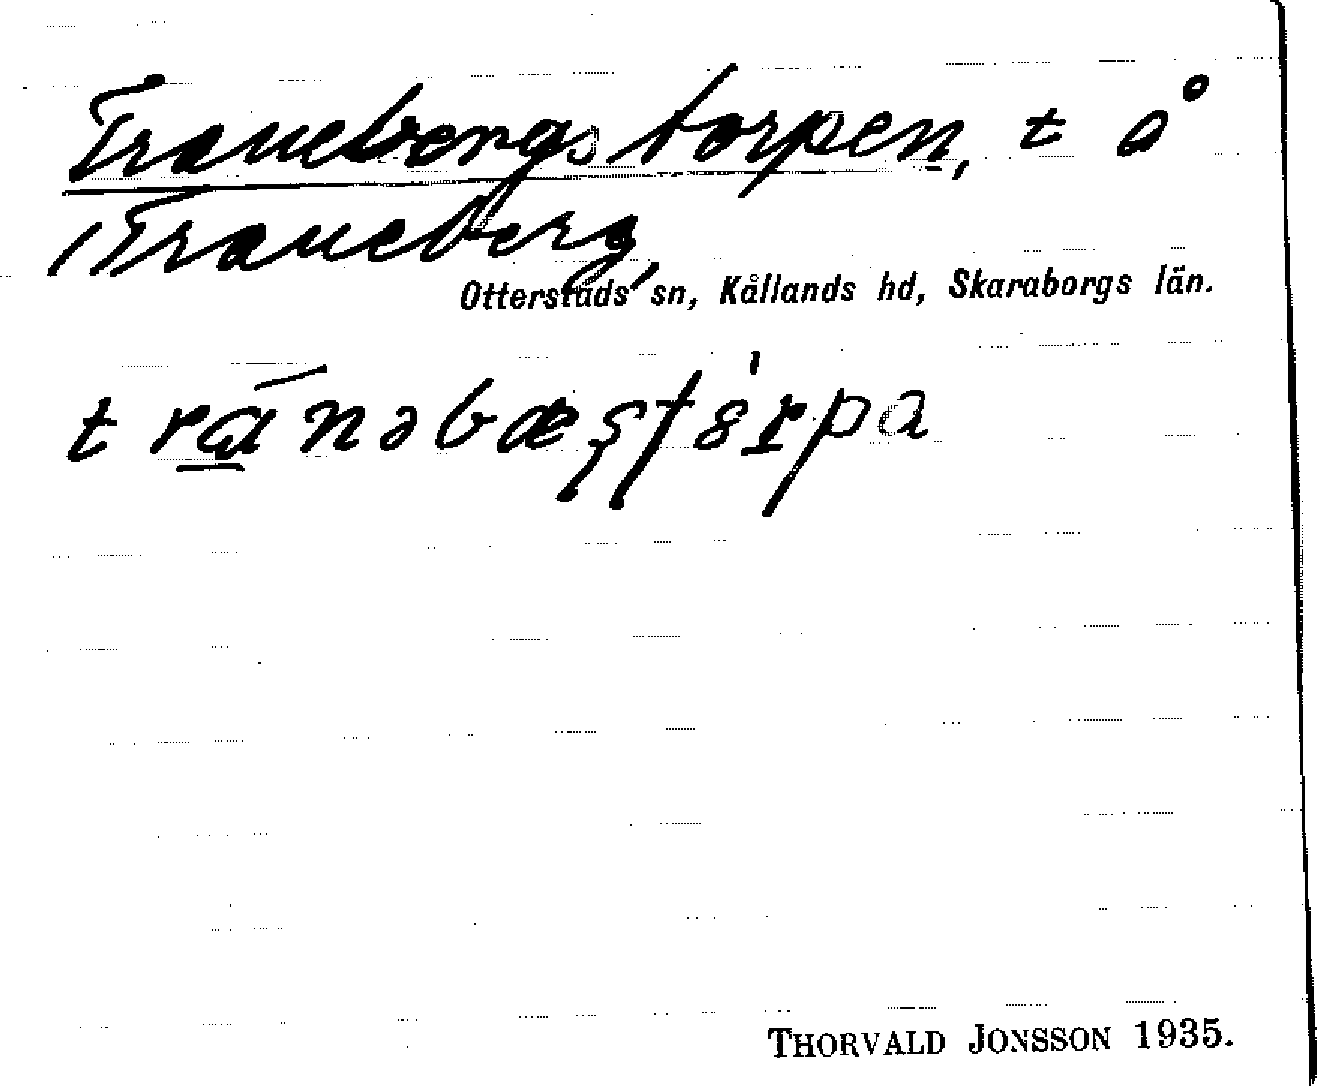 Tranebergstorpen, t å
/Traneberg,
Otterstads sn, Kållands hd, Skaraborgs län.
THORVALD JONSSON 1935.